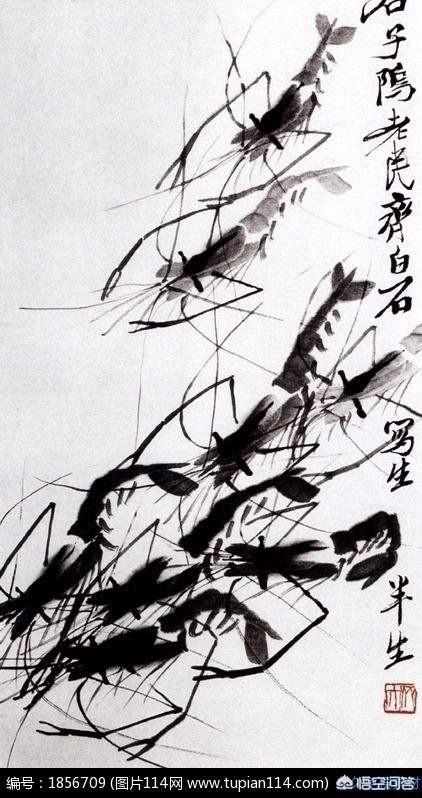 子隝老民齊白石
写生
半生
编号：1856709 (图片114网 www.tupian114.com)
悟空问答